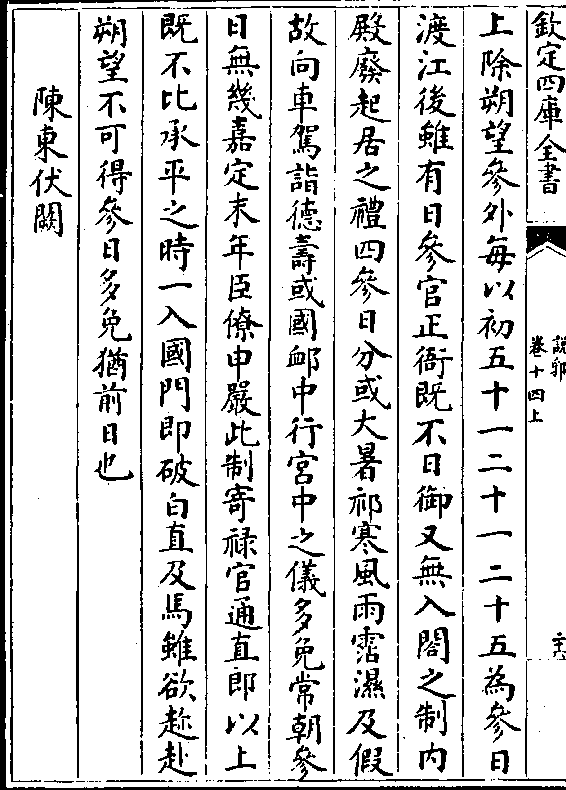 欽定四庫全書
說郛
卷十四上
上除朔望參外每以初五十一二十一二十五為參日
渡江後雖有日參官正衙既不日御又無入閤之制内
殿廢起居之禮四參日分或大暑祁寒風雨霑濕及假
故向車駕詣德壽或國䘏中行宫中之儀多免常朝參
日無幾嘉定末年臣僚申嚴此制寄禄官通直即以上
既不比承平之時一入國門即破白直及馬雖欲趂赴
朔望不可得參日多免猶前日也
陳東伏闕